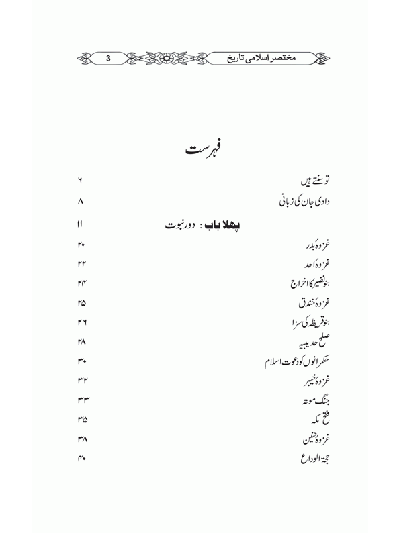 مختصر اسلامی تاریخ 3
فہرست
تو سنتے ہیں ۷
دادی جان کی زبانی ۸
پہلا باب : دورِ نبوت ۱۱
غزوۂ بدر ۲۰
غزوۂ احد ۲۲
بنو نضیر کا اخراج ۲۴
غزوۂ خندق ۲۵
بنو قریظہ کی سزا ۲۶
صلح حدیبیہ ۲۸
حکمرانوں کو دعوت اسلام ۳۰
غزوۂ خیبر ۳۲
جنگ موتہ ۳۳
فتح مکہ ۳۵
غزوۂ حنین ۳۸
حجۃ الوداع ۴۰